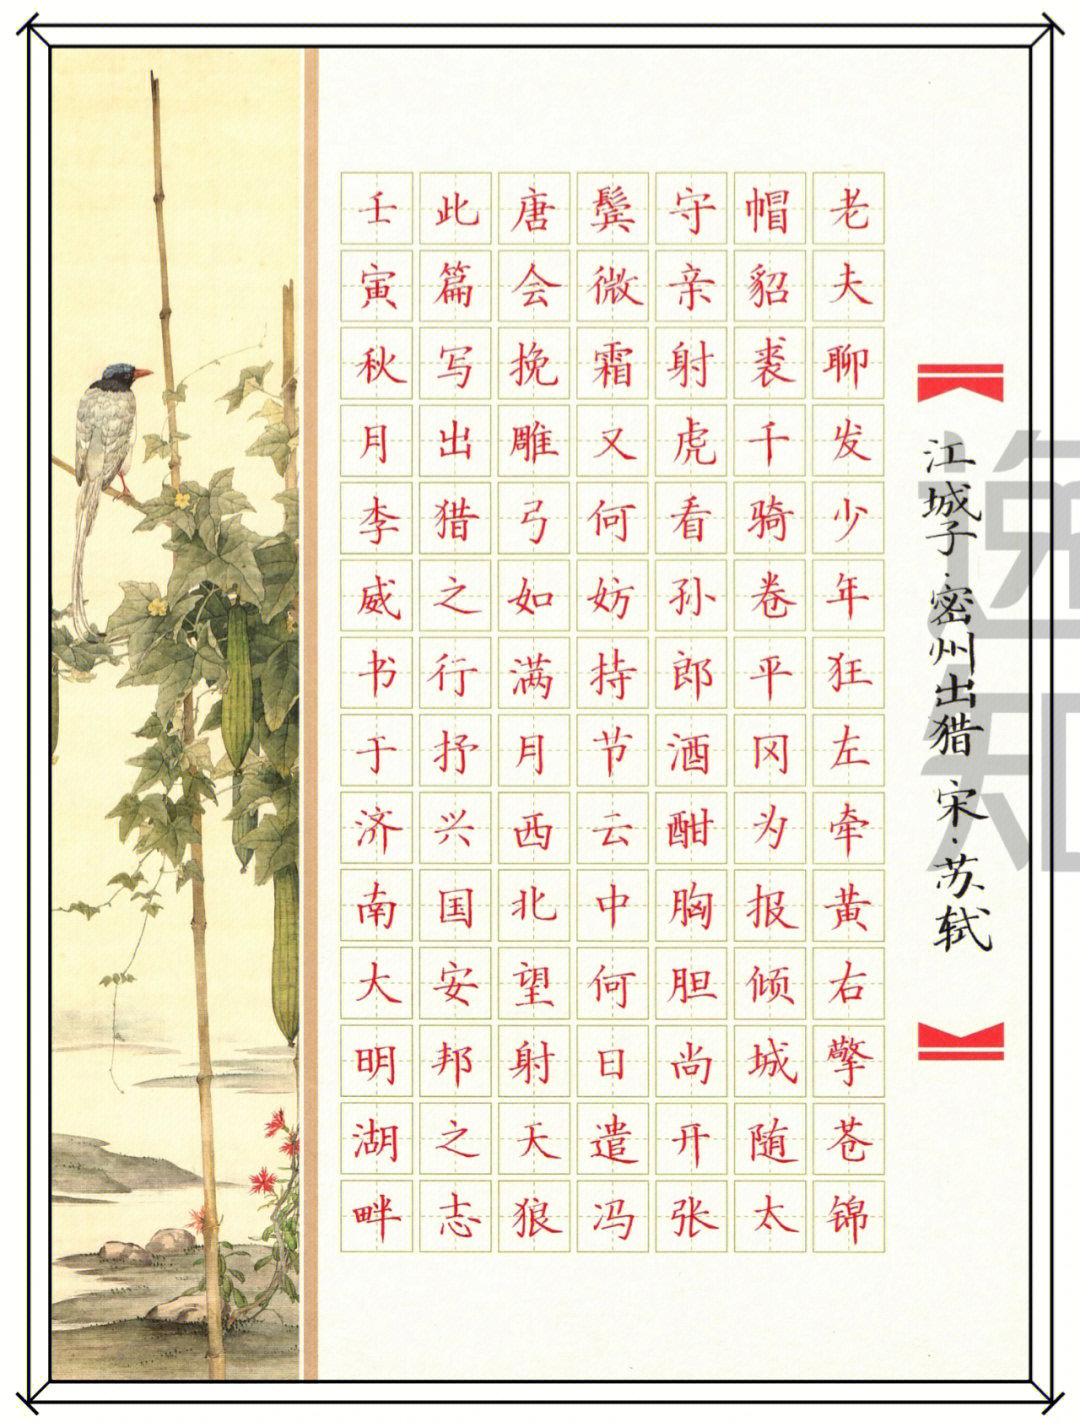 江城子 密州出猎 宋·苏轼
老夫聊发少年狂左牵黄右擎苍锦
帽貂裘千骑卷平冈为报倾城随太
守亲射虎看孙郎酒酣胸胆尚开张
鬓微霜又何妨持节云中何日遣冯
唐会挽雕弓如满月西北望射天狼
此篇写出猎之行抒兴国安邦之志
壬寅秋月李威书于济南大明湖畔